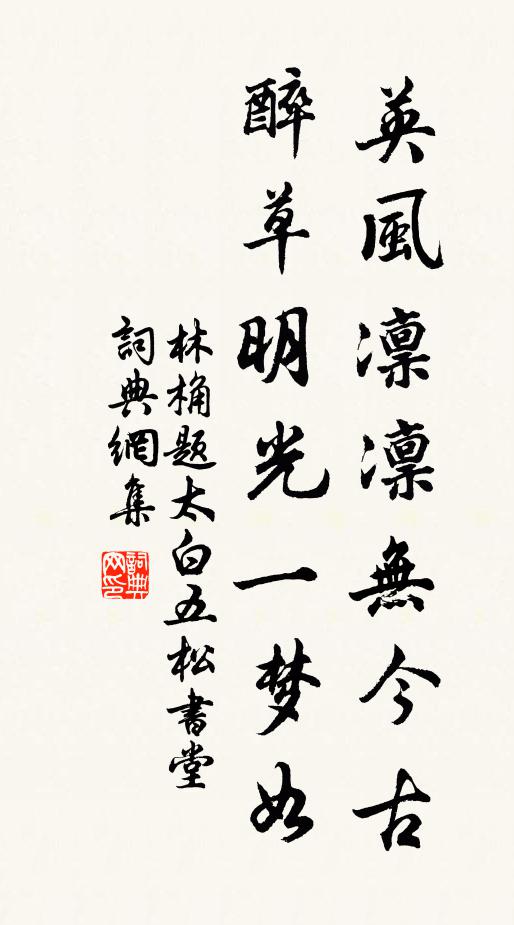 英風凛凛無今古
醉草明光一梦如
林桷题太白五松書堂
詞典網集
詞典网印